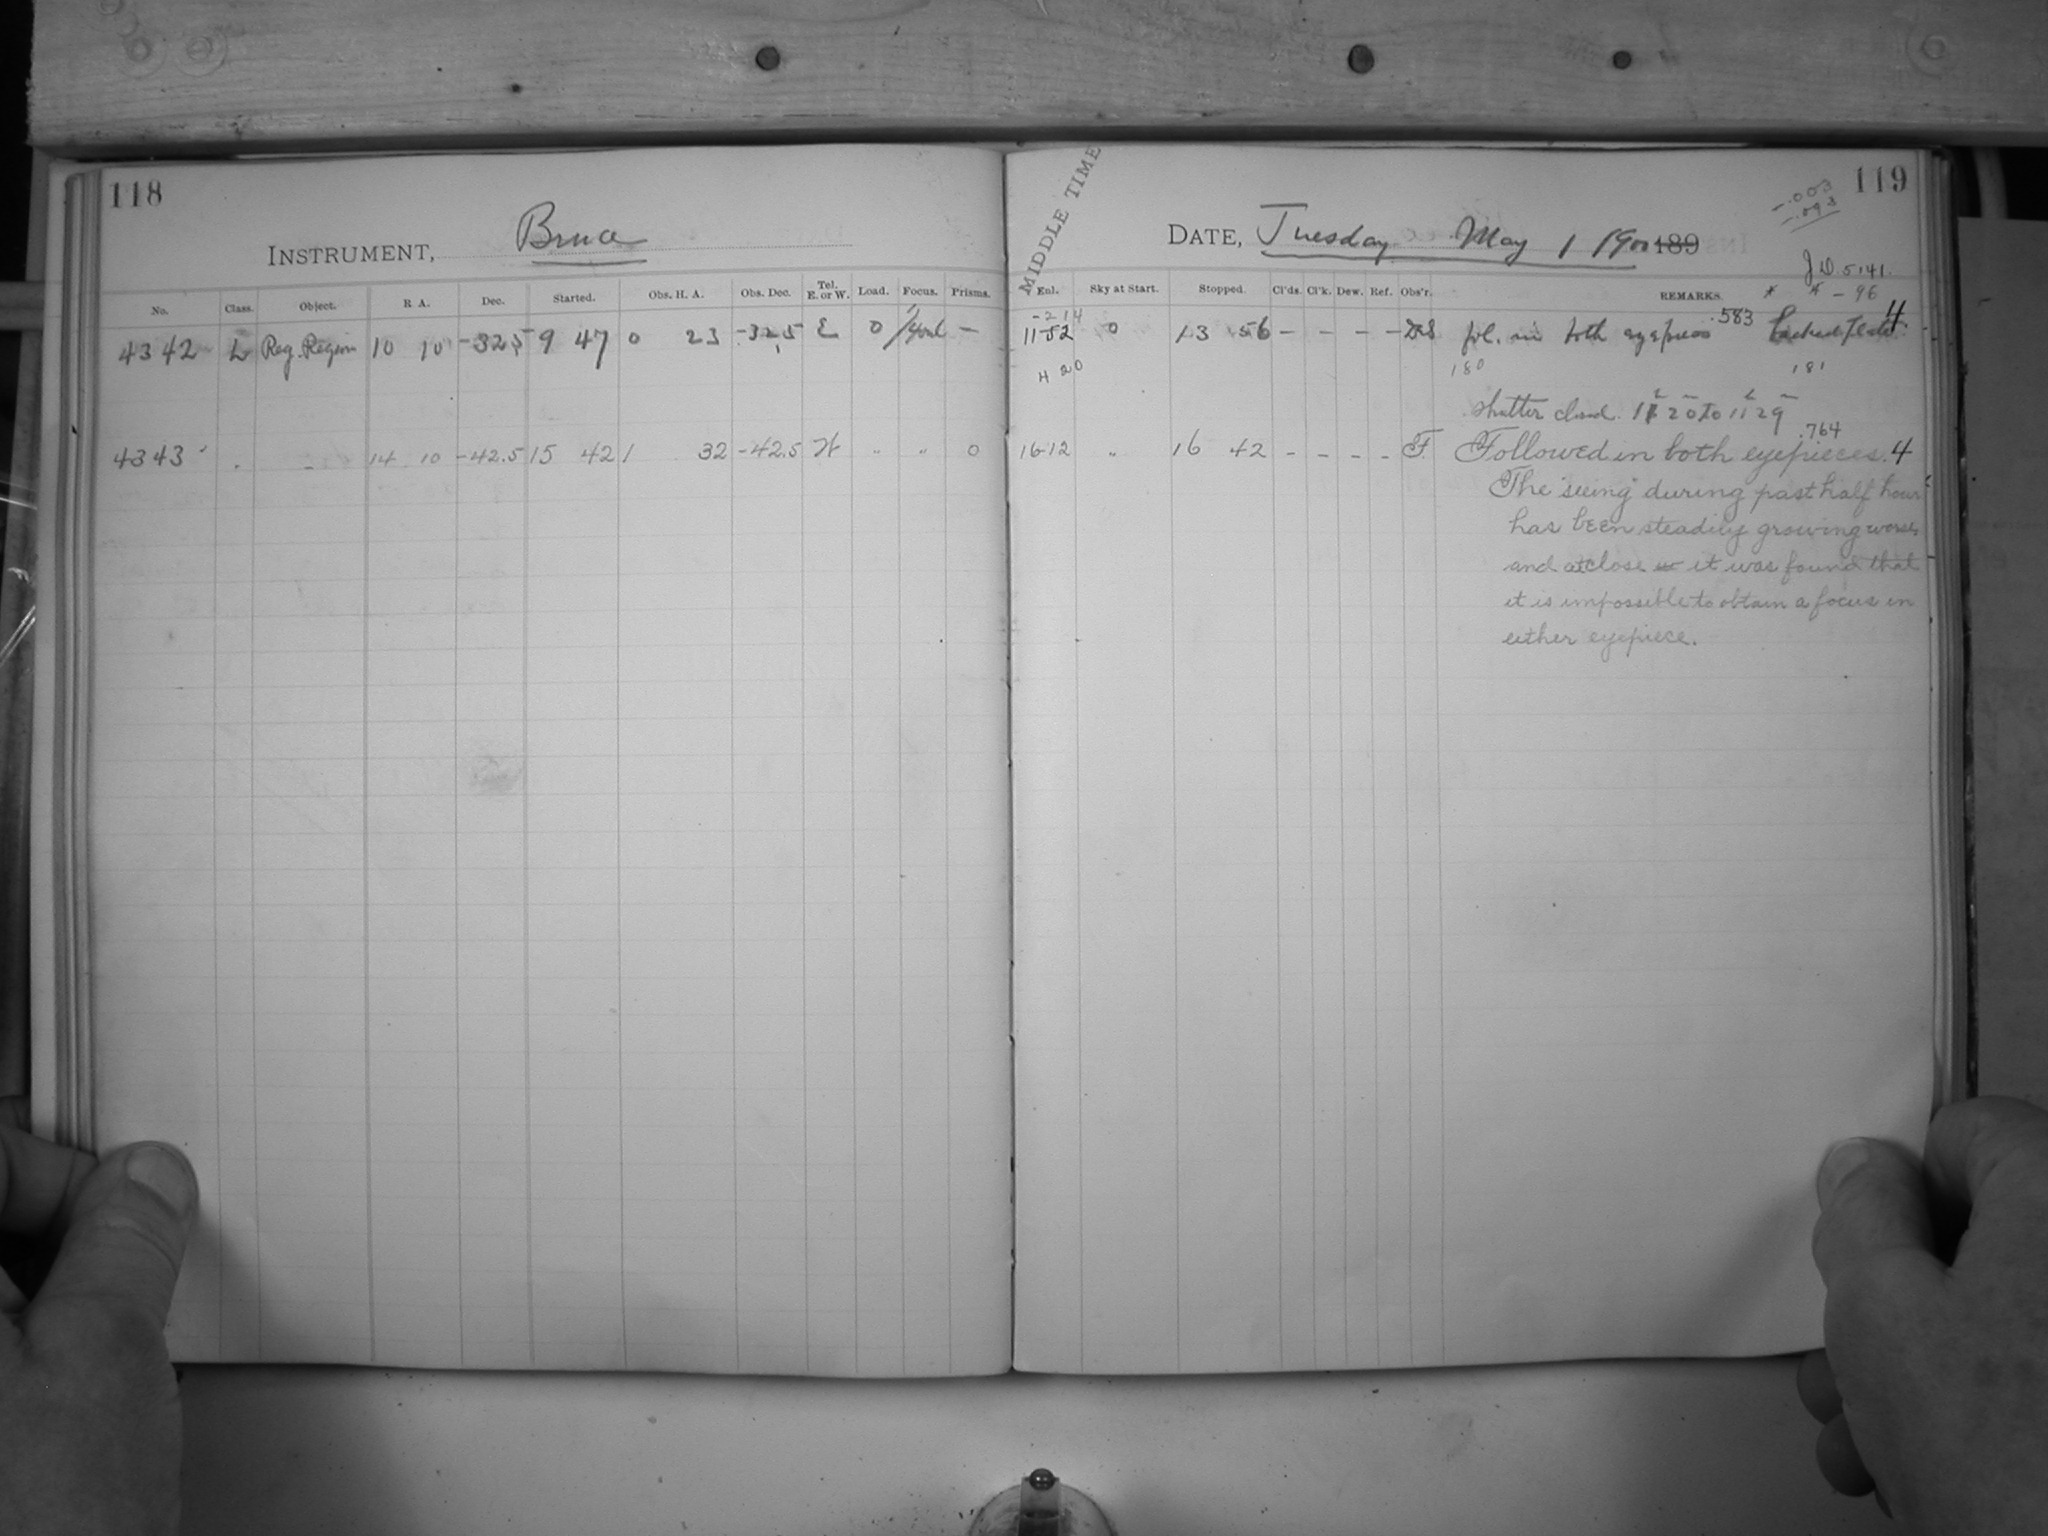 118
INSTRUMENT, Bruce
No. Class. Object. R A. Dec. Started. Obs. H. A. Obs. Dec. Tel. E. or W. Load. Focus. Prisms.
4342 L Reg. Region 10 10 -32.5 9 47 0 23 -32.5 E 0 —
4343 " " 14 10 -42.5 15 42 1 32 -42.5 W " " 0
MIDDLE TIME
119
-.003
-.093
DATE, Tuesday May 1 1900 189
J.D. 5141.
* * - 96
Enl. Sky at Start. Stopped. Cl'ds. Cl'k. Dew. Ref. Obs'r. REMARKS.
-214 .583
11-52 0 13 56 - - - - fol. in both eyepieces 4
H 20 180 181
Shutter closed 11 20 to 11 29
.764
16-12 " 16 42 - - - - F. Followed in both eyepieces. 4
The "seeing" during past half hour
has been steadily growing worse
and at close it was found that
it is impossible to obtain a focus in
either eyepiece.